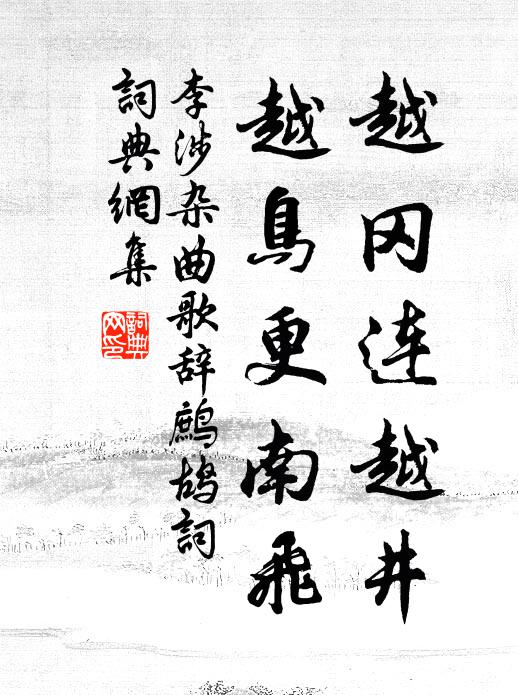 越冈连越井
越鳥更南飛
李涉杂曲歌辞鹧鸪詞
詞典網集
詞典
网印